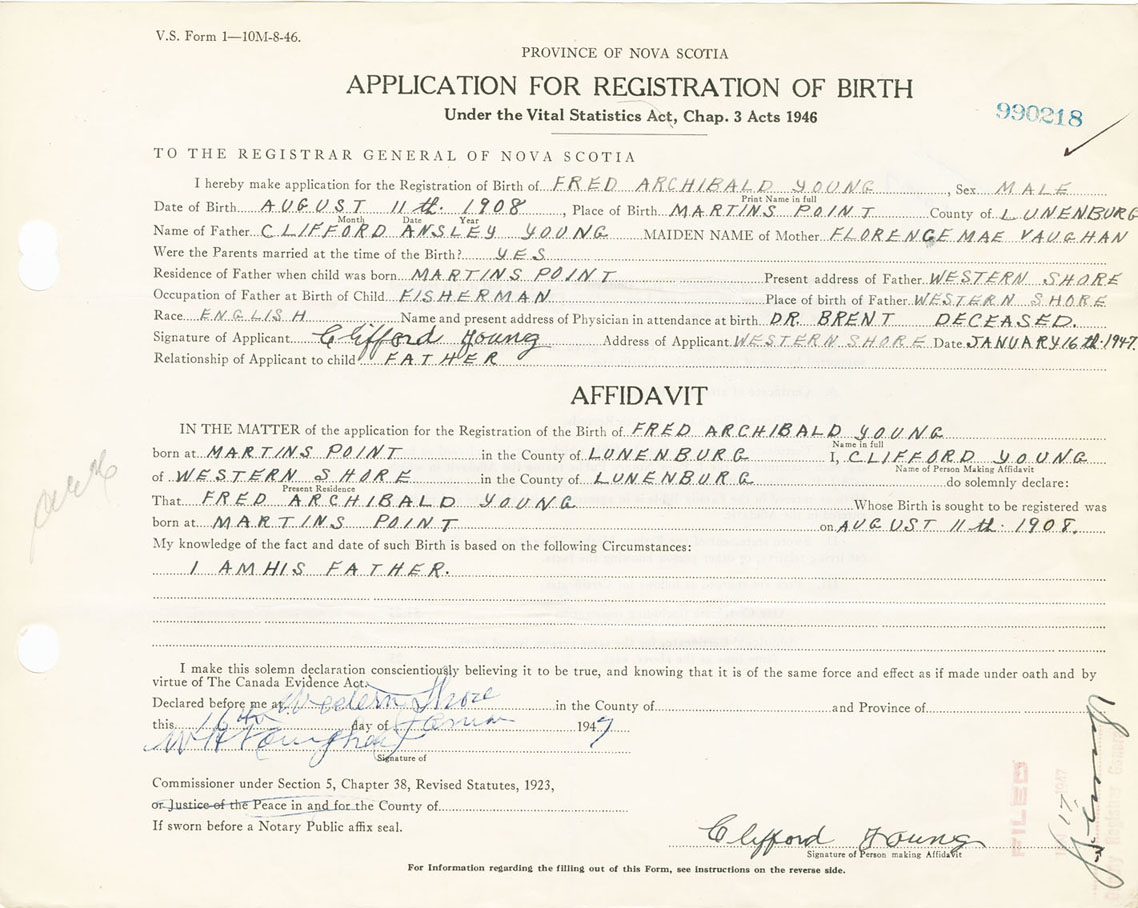 V.S. Form 1—10M-8-46.
PROVINCE OF NOVA SCOTIA
APPLICATION FOR REGISTRATION OF BIRTH
Under the Vital Statistics Act, Chap. 3 Acts 1946
990218
TO THE REGISTRAR GENERAL OF NOVA SCOTIA
I hereby make application for the Registration of Birth of FRED ARCHIBALD YOUNG, Sex MALE
Print Name in full
Date of Birth AUGUST 11th. 1908, Place of Birth MARTINS POINT County of LUNENBURG
Month Date Year
Name of Father CLIFFORD ANSLEY YOUNG MAIDEN NAME of Mother FLORENCE MAE VAUGHAN
Were the Parents married at the time of the Birth? YES
Residence of Father when child was born MARTINS POINT Present address of Father WESTERN SHORE
Occupation of Father at Birth of Child FISHERMAN Place of birth of Father WESTERN SHORE
Race ENGLISH Name and present address of Physician in attendance at birth DR. BRENT DECEASED.
Signature of Applicant Clifford Young Address of Applicant WESTERN SHORE Date JANUARY 16th. 1947.
Relationship of Applicant to child FATHER
AFFIDAVIT
IN THE MATTER of the application for the Registration of the Birth of FRED ARCHIBALD YOUNG
Name in full
born at MARTINS POINT in the County of LUNENBURG I, CLIFFORD YOUNG
Name of Person Making Affidavit
of WESTERN SHORE in the County of LUNENBURG do solemnly declare:
Present Residence
That FRED ARCHIBALD YOUNG Whose Birth is sought to be registered was
born at MARTINS POINT on AUGUST 11th. 1908.
My knowledge of the fact and date of such Birth is based on the following Circumstances:
I AM HIS FATHER.
I make this solemn declaration conscientiously believing it to be true, and knowing that it is of the same force and effect as if made under oath and by
virtue of The Canada Evidence Act.
Declared before me at Western Shore in the County of and Province of
this 16th day of 1947
Signature of
Commissioner under Section 5, Chapter 38, Revised Statutes, 1923,
or Justice of the Peace in and for the County of
If sworn before a Notary Public affix seal.
Clifford Young
Signature of Person making Affidavit
For Information regarding the filling out of this Form, see instructions on the reverse side.
FILED
17 1947